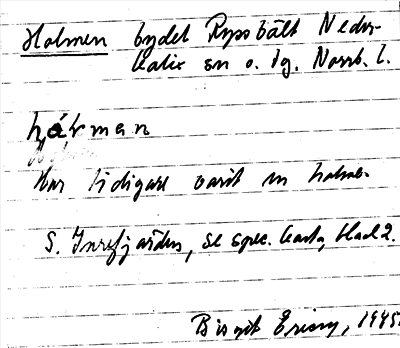 Holmen bydel Ryssbält Neder-
kalix sn o. tg. Norrb. l.
hårman
Har tidigare varit en holme
S. Inrefjärden, se spec. karta, blad 2.
Birgit Ericny, 1945